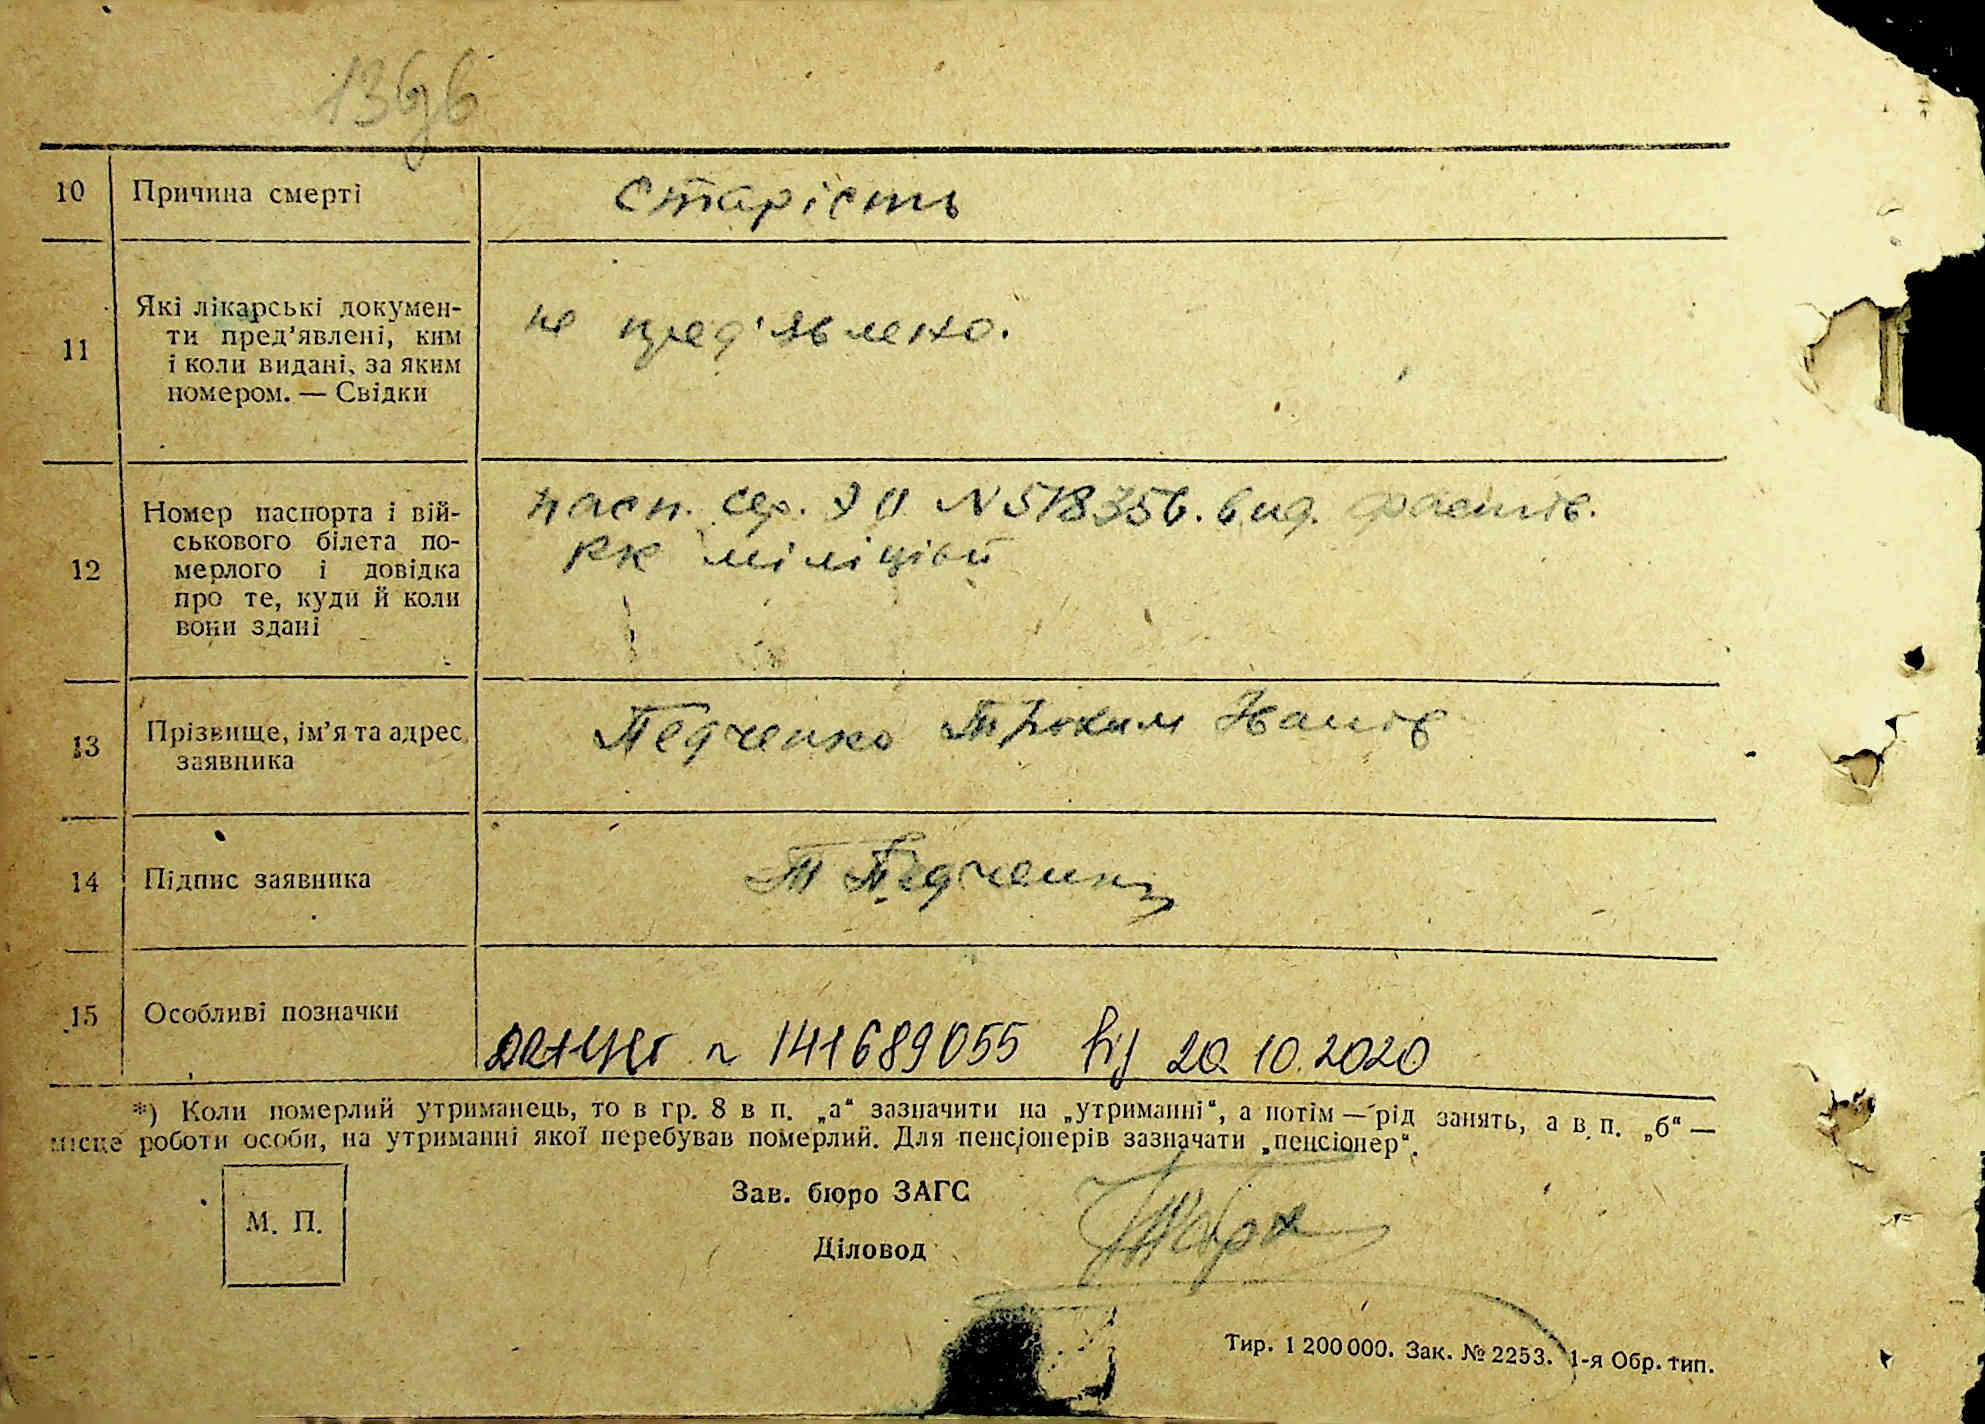 10 Причина смерті старість
11 Які лікарські докумен-
ти пред’явлені, ким
і коли видані, за яким
номером. — Свідки
не пред'явлено.
12 Номер паспорта і вій-
ськового білета по-
мерлого і довідка
про те, куди й коли
вони здані
пасп. сер. N 518356. вид. Фастів.
РК міліції
13 Прізвище, ім’я та адрес
заявника
Педченко Трохим Іванів
14 Підпис заявника Т Педченко
15 Особливі позначки
витяг n 141689055 від 20.10.2020
*) Коли померлий утриманець, то в гр. 8 в п. „а“ зазначити на „утриманні“, а потім — рід занять, а в п. „б“ —
місце роботи особи, на утриманні якої перебував померлий. Для пенсіонерів зазначати „пенсіонер“.
М. П.
Зав. бюро ЗАГС
Діловод
Тир. 1 200 000. Зак. № 2253. 1-я Обр. тип.